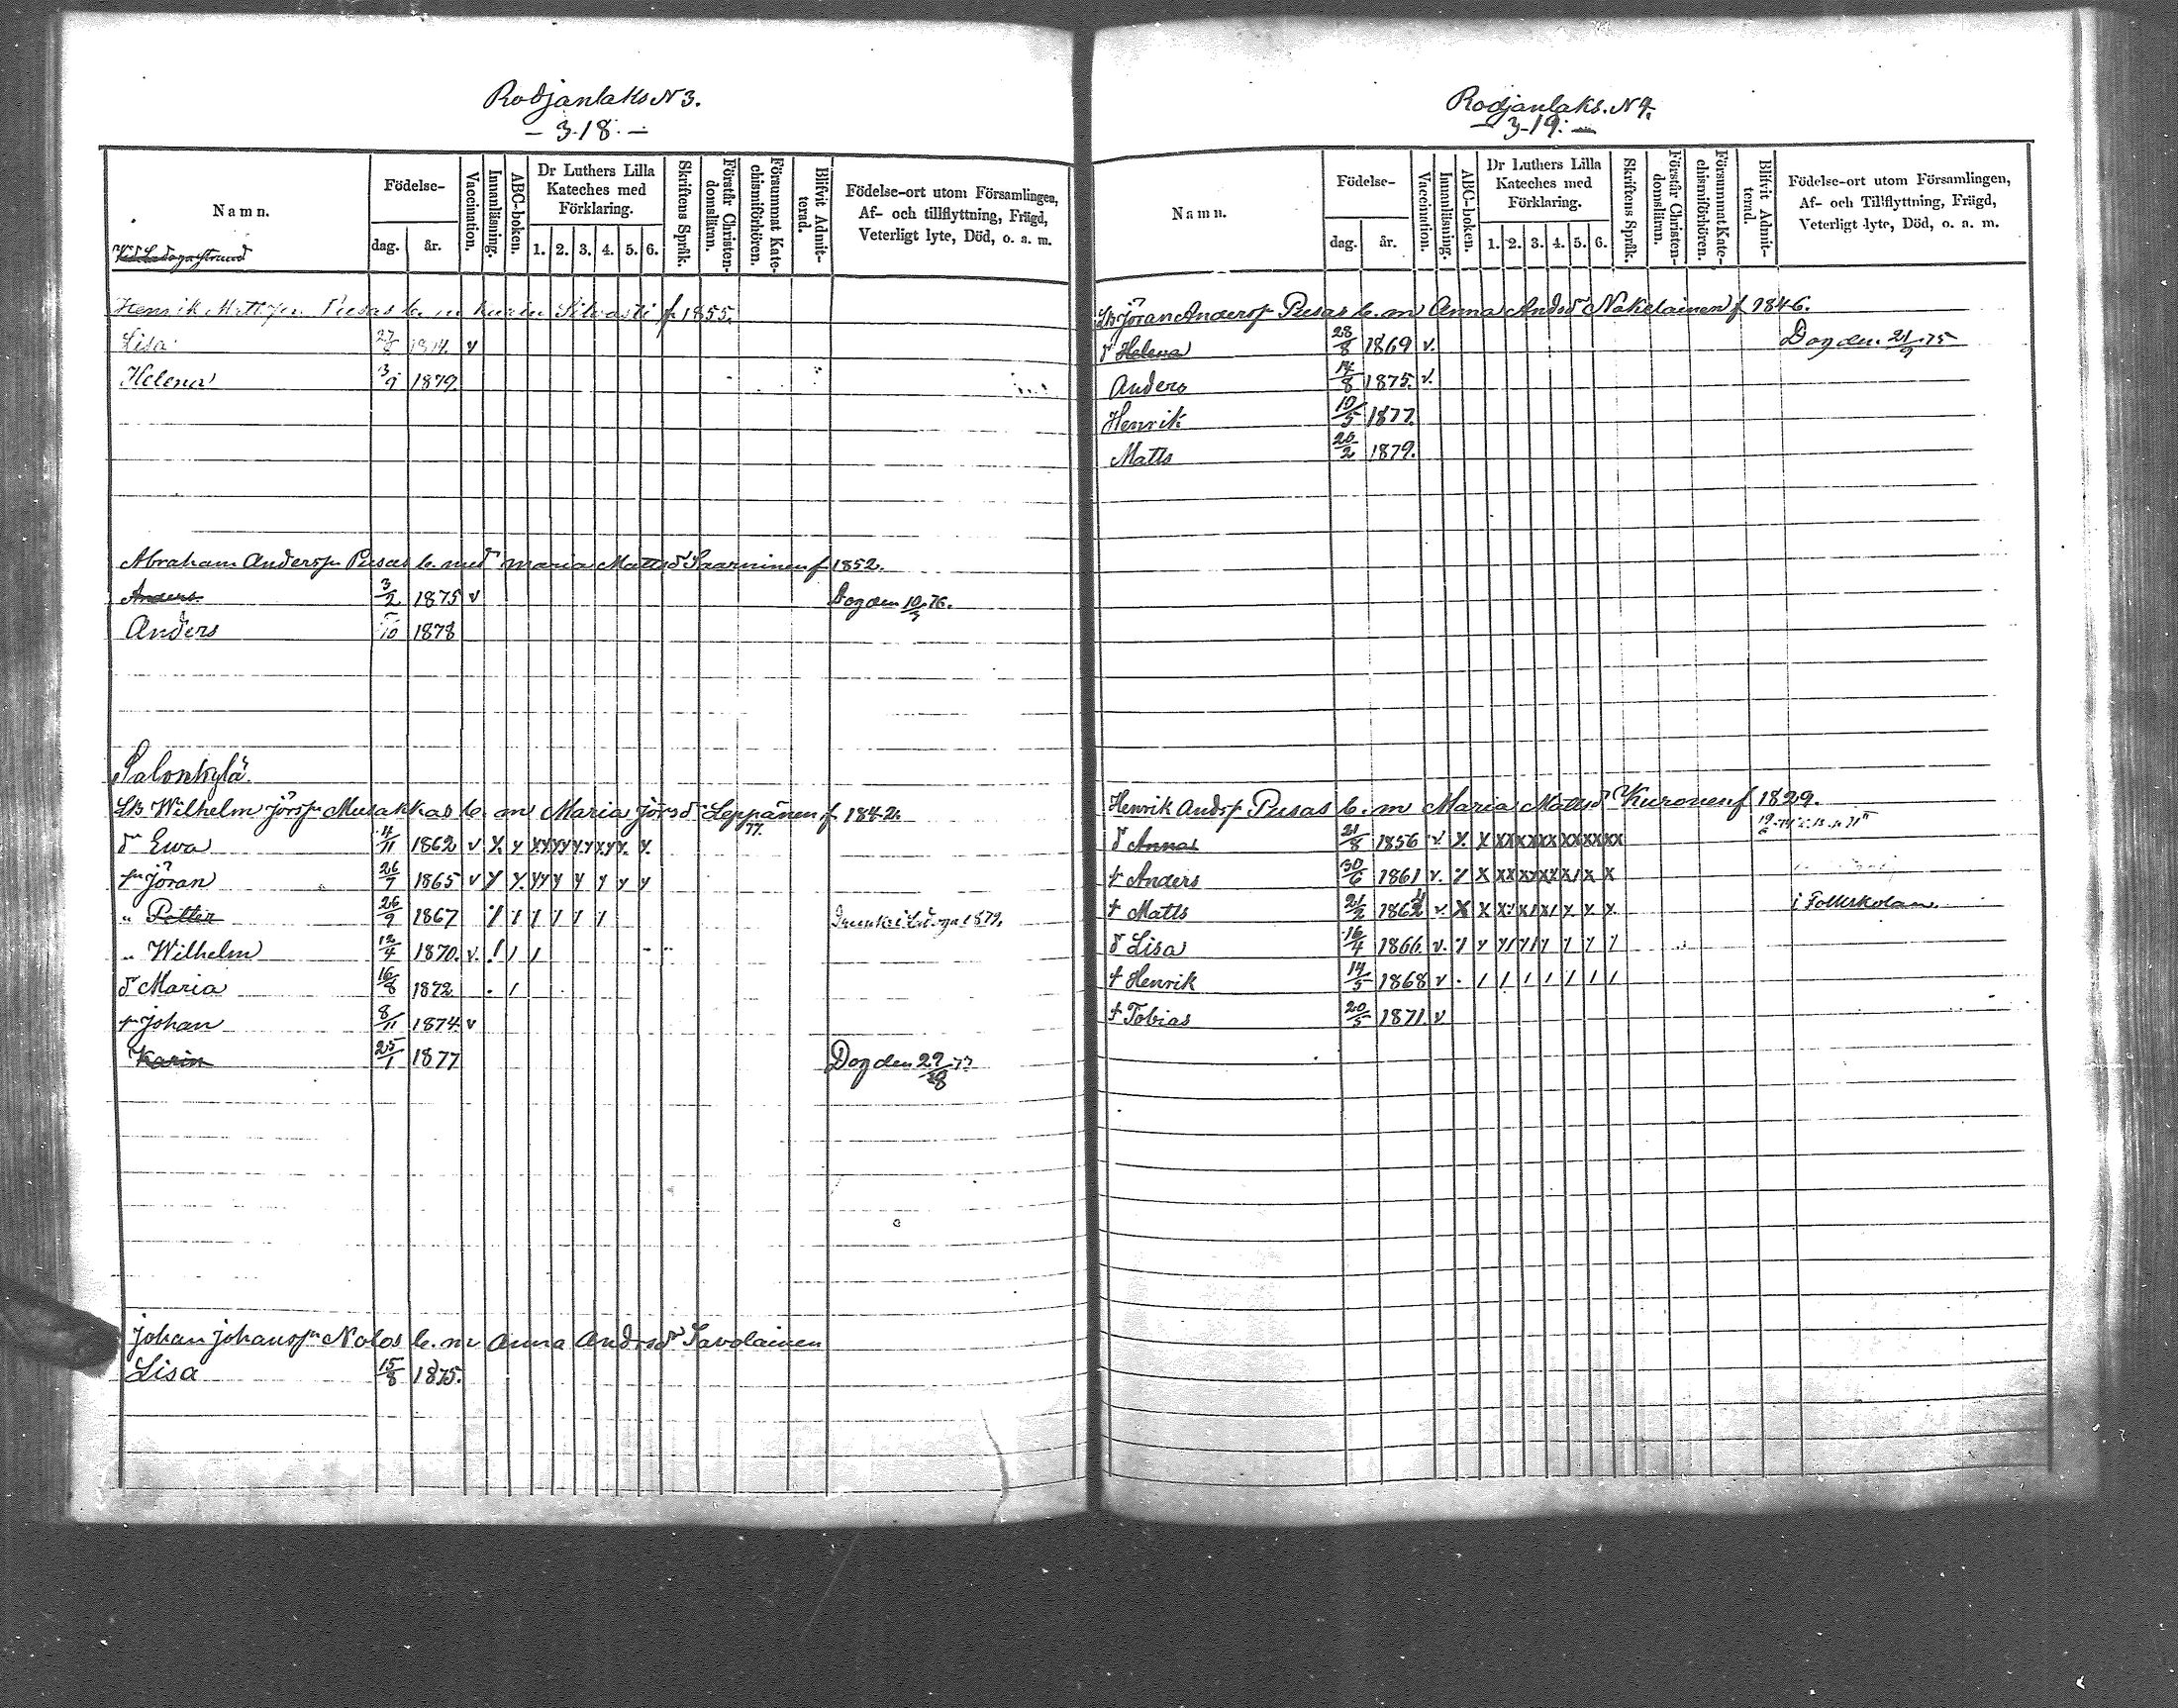 Rodjanlaks N 3.
- 318. -
Namn.
Födelse-
dag.
år.
Vaccination.
Innanläsning.
ABC-boken.
Dr Luthers Lilla
Kateches med
Förklaring.
1. 2. 3. 4. 5. 6.
Skriftens Språk.
Förstår Christen-
domsläran.
Försummat Kate-
chismiförhören.
Blifvit Admit-
terad.
Födelse-ort utom Församlingen,
Af- och tillflyttning, Frägd,
Veterligt lyte, Död, o. a. m.
Vid Ladogastrand
Henrik Pusas b. m Karin Silvasti f 1855.
Lisa v
Helena 3/9 1879.
Abraham Andersn Pusas b. med Maria Mattsdr Saarninen f 1852.
Anders 3/2 1875 v Dog den 10/3 76.
Anders /10 1878
Salonkylä.
Lb Wilhelm Jörsn Musakkas b. m Maria Jörsdr Leppänen f 1842.
77.
dr Ewa 4/11 1862 v x y xy xy y y xy y. y.
sn Jöran 26/7 1865 v y y. yy y y y y y
" Petter 26/9 1867 / / / / / / Drunkn i Ladoga 1879.
" Wilhelm 12/4 1870. v. / / /
dr Maria 16/8 1872 . /
sn Johan 8/11 1874 v
Karin 25/1 1877 Dog den 29/8 77
Johan Johansn Nolos b. m Anna Andrsdr Savolainen
Lisa 15/8 1875.
Rodjanlaks. N 4.
- 319. -
Namn.
Födelse-
dag.
år.
Vaccination.
Innanläsning.
ABC-boken.
Dr Luthers Lilla
Kateches med
Förklaring.
1. 2. 3. 4. 5. 6.
Skriftens Språk.
Förstår Christen-
domsläran.
Försummat Kate-
chismiförhören.
Blifvit Admit-
terad.
Födelse-ort utom Församlingen,
Af- och Tillflyttning, Frägd,
Veterligt lyte, Död, o. a. m.
Lb Jöran Andersn Pusas b. m Anna Andsdr Nokelainen f 1846.
dr Helena 28/8 1869 v. Dog den 21/9 75
Anders 14/8 1875. v.
Henrik 10/5 1877.
Matts 20/2 1879.
Henrik Andsn Pusas b. m Maria Mattsdr Kuronen f 1829.
dr Anna 21/8 1856 v. x x xx xx xx xx xx xx
s Anders 30/6 1861 v. / x xx xx xx x/ x x
s Matts 21/2 1862 v. x x x/ x/ x/ y. y. y. i Folkskolan
dr Lisa 16/4 1866. v. / y y/ y/ y y y y
s Henrik 14/5 1868 v . / / / / / / /
s Tobias 20/5 1871 v